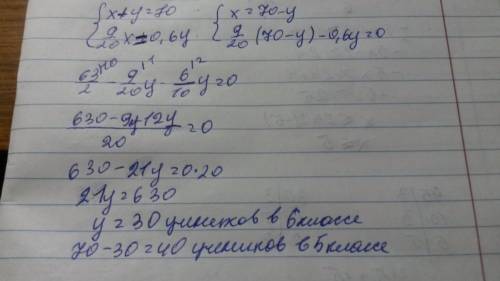 {x+y=70 {x=70-y
{9/20 x=0,6y {9/20 (70-y)-0,6y=0
63/2 \10 - 9/20 \1 y - 6/10 \2 y=0
630-9y-12y/20 =0
630-21y=0·20
21y=630
y=30 учинеков в 6 классе
70-30=40 учеников в 5 классе